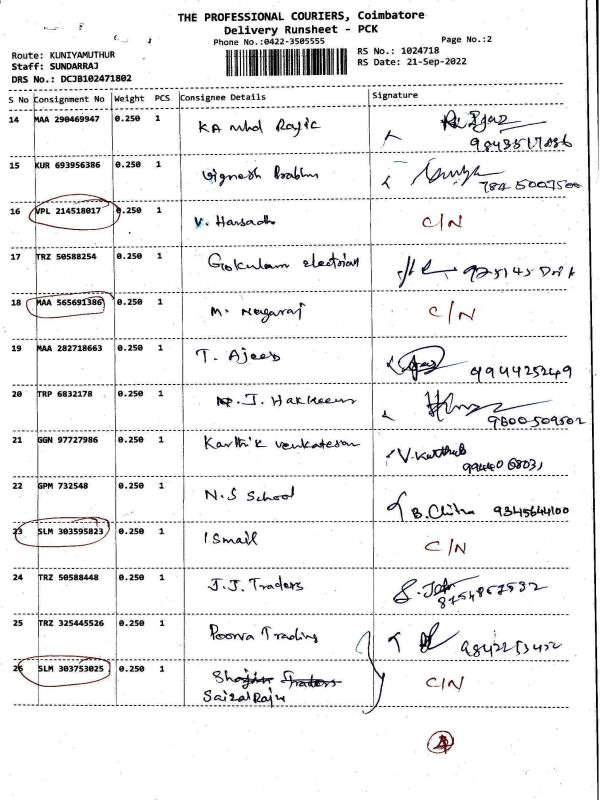 THE PROFESSIONAL COURIERS, Coimbatore
Delivery Runsheet - PCK
Phone No.:0422-3505555
Page No.:2
Route: KUNIYAMUTHUR
Staff: SUNDARRAJ
DRS No.: DCJB102471802
RS No.: 1024718
RS Date: 21-Sep-2022
S No Consignment No Weight PCS Consignee Details Signature
14 MAA 290469947 0.250 1 KA Mhd Rafic
15 KUR 693956386 0.250 1 Vignesh Prabhu
16 VPL 214518017 0.250 1 V. Harsadh C/N
17 TRZ 50588254 0.250 1 Gokulam electrical
18 MAA 565691386 0.250 1 M. Nagaraj C/N
19 MAA 282718663 0.250 1 T. Ajees 9944425249
20 TRP 6832178 0.250 1 J. Hakkeem 9600509502
21 GGN 97727986 0.250 1 Karthik Venkatesan
22 GPM 732548 0.250 1 N.S School B. Chitra 9345644100
23 SLM 303595823 0.250 1 Ismail C/N
24 TRZ 50588448 0.250 1 J.J. Traders
25 TRZ 325445526 0.250 1 Poorva Trading
26 SLM 303753025 0.250 1 C/N